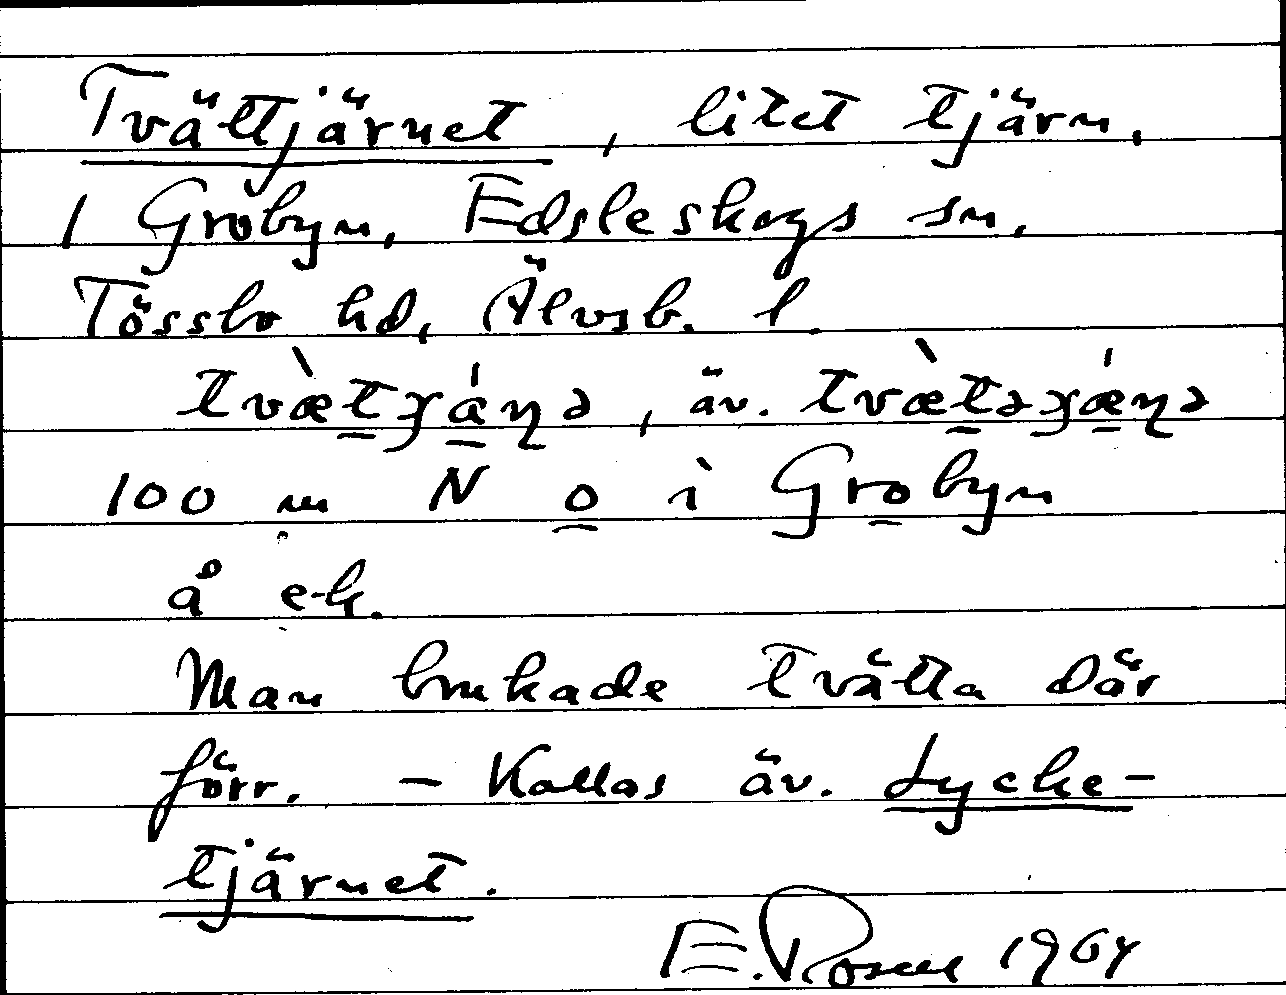 Tvättjärnet, litet tjärn,
1 Gröbyn, Edsleskogs sn,
Tössbo hd, Älvsb. l.
tvæ̀tɣáṇə, äv. tvæ̀təɣǽṇə
100 m N o i Grobyn
å e-k.
Man brukade tvätta där
förr. – Kallas äv. Lycke-
tjärnet.
E. Rosell 1964